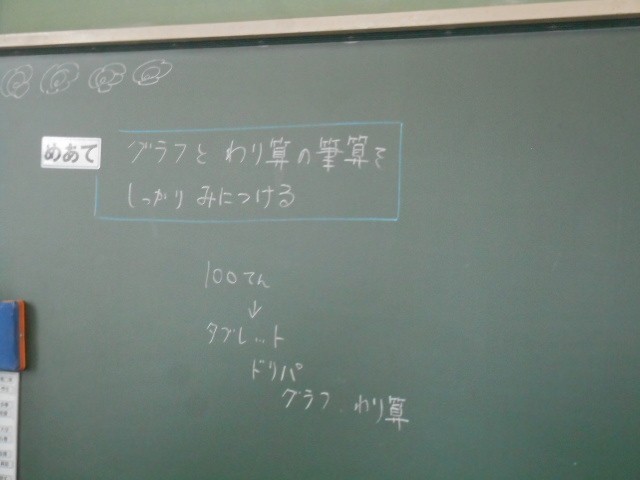 めあて
グラフと わり算の筆算を
しっかり みにつける
100てん
↓
タブレット
ドリパ
グラフ わり算